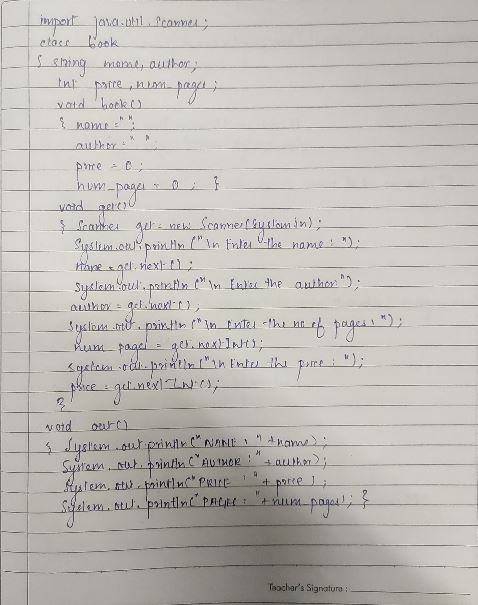 import java.util.Scanner;
class book
{ string name, author;
int price, num_pages;
void book()
{ name = " ";
author = " ";
price = 0;
num_pages = 0; }
void get()
{ Scanner get = new Scanner(System.in);
System.out.println("\n Enter the name : ");
name = get.next();
System.out.println("\n Enter the author");
author = get.next();
System.out.println("\n Enter the no of pages : ");
num_pages = get.nextInt();
System.out.println("\n Enter the price : ");
price = get.nextInt();
}
void out()
{ System.out.println("NAME : " + name);
System.out.println("AUTHOR : " + author);
System.out.println("PRICE : " + price);
System.out.println("PAGES : " + num_pages); }
Teacher's Signature :